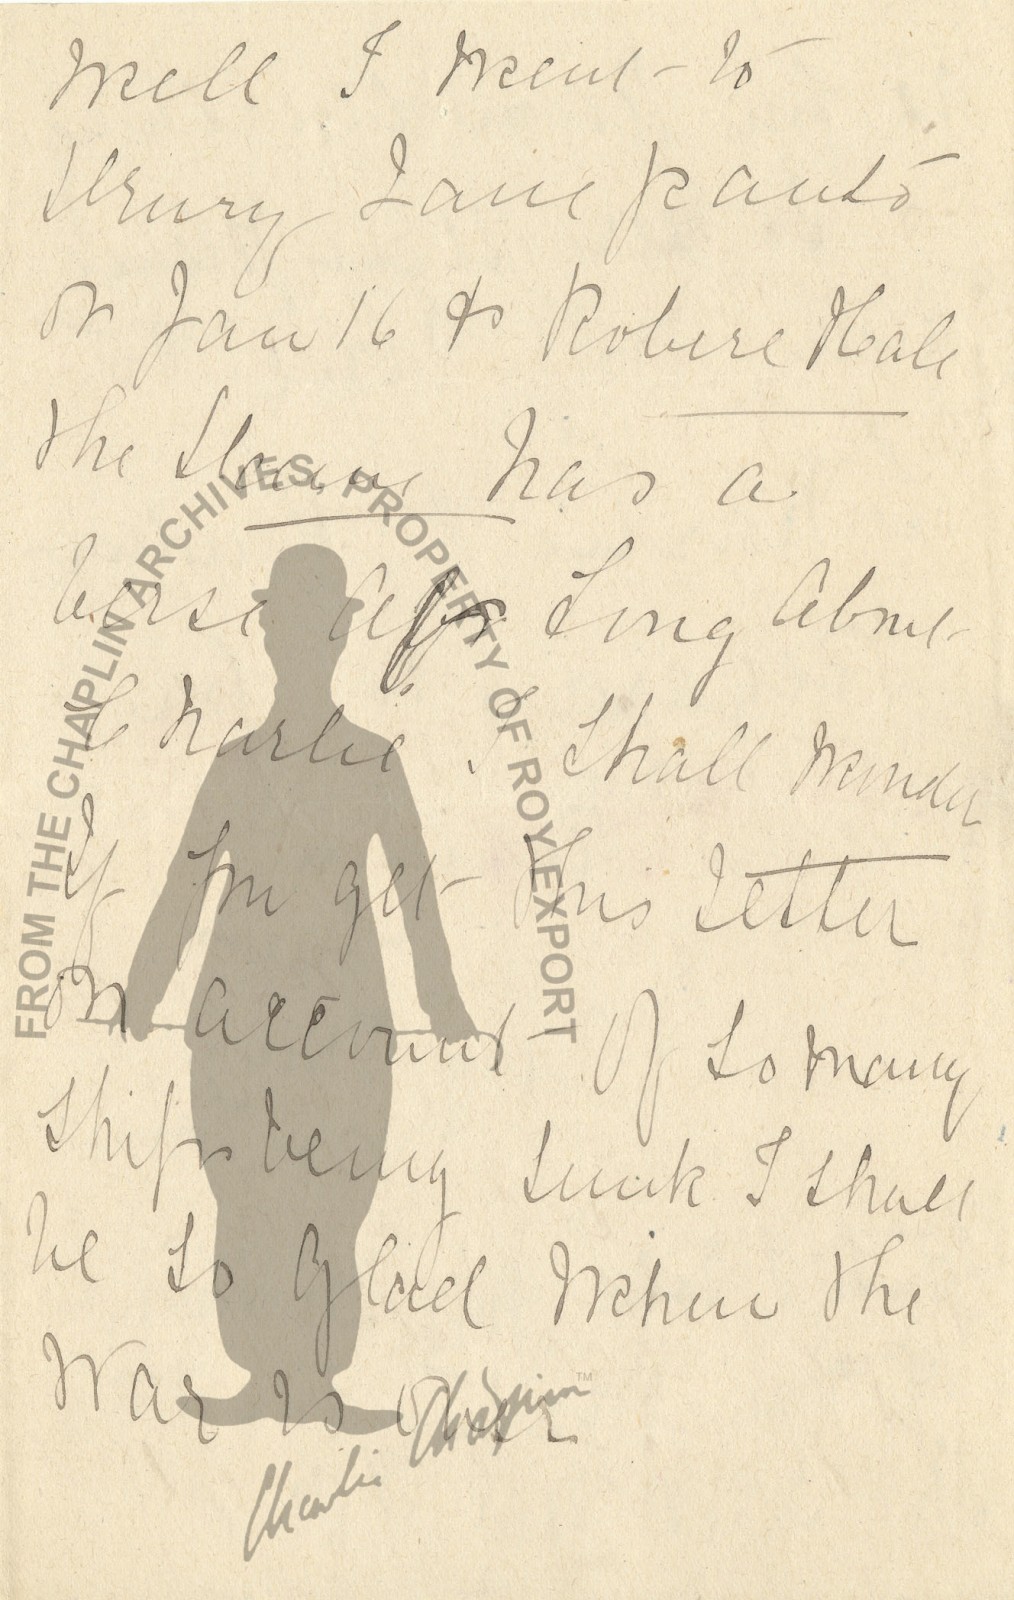 Well I went to
Drury Lane panto
on Jan 16 & Robert Hale
the Dame has a
verse of a Song about
Charlie I shall wonder
If you get this letter
on account of so many
ships being sunk I shall
be so glad when the
War is over
FROM THE CHAPLIN ARCHIVES, PROPERTY OF ROY EXPORT
Charlie Chaplin™